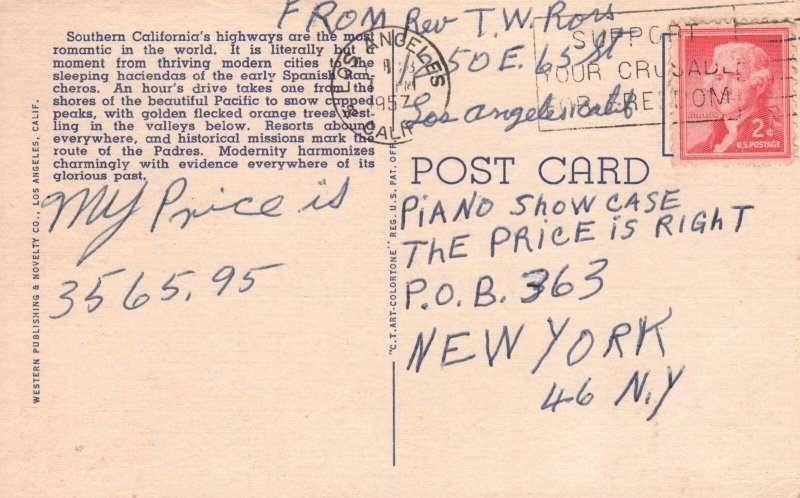 FROM Rev T.W. Ross
1250 E. 65 St
Los Angeles Calif
Southern California's highways are the most
romantic in the world. It is literally but a
moment from thriving modern cities to the
sleeping haciendas of the early Spanish Ran-
cheros. An hour's drive takes one from the
shores of the beautiful Pacific to snow capped
peaks, with golden flecked orange trees nest-
ling in the valleys below. Resorts abound
everywhere, and historical missions mark the
route of the Padres. Modernity harmonizes
charmingly with evidence everywhere of its
glorious past.
LOS ANGELES
1957
CALIF
SUPPORT
YOUR CRUSADE
FOR FREEDOM
JEFFERSON
2¢
U.S. POSTAGE
My Price is
3565.95
POST CARD
PIANO SHOWCASE
THE PRICE IS RIGHT
P.O.B. 363
NEW YORK
46 N.Y
WESTERN PUBLISHING & NOVELTY CO., LOS ANGELES, CALIF.
"C.T. ART-COLORTONE" REG. U.S. PAT. OFF.